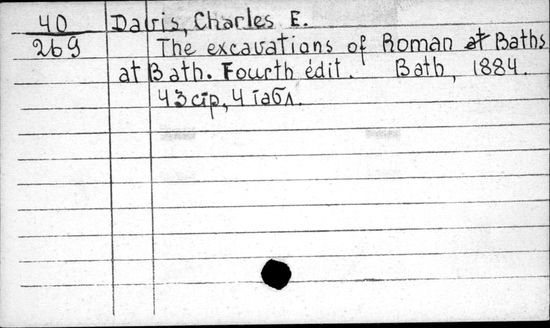 40 Davris, Charles E.
269 The excavations of Roman at Baths
at Bath. Fourth édit. Bath, 1884.
43 стр, 4 табл.